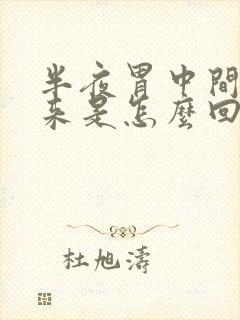 半夜胃中間
来是怎麼回
杜旭濤